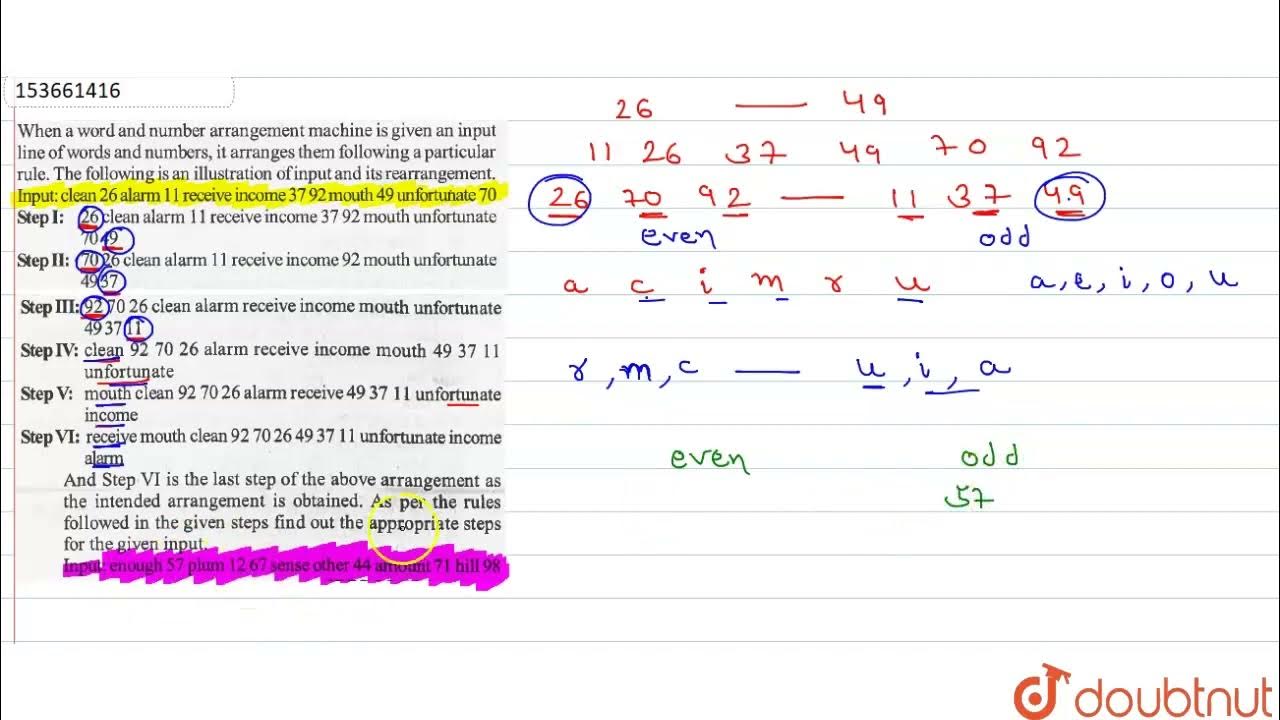 153661416
When a word and number arrangement machine is given an input
line of words and numbers, it arranges them following a particular
rule. The following is an illustration of input and its rearrangement.
Input: clean 26 alarm 11 receive income 37 92 mouth 49 unfortunate 70
Step I: 26 clean alarm 11 receive income 37 92 mouth unfortunate
70 49
Step II: 70 26 clean alarm 11 receive income 92 mouth unfortunate
49 37
Step III: 92 70 26 clean alarm receive income mouth unfortunate
49 37 11
Step IV: clean 92 70 26 alarm receive income mouth 49 37 11
unfortunate
Step V: mouth clean 92 70 26 alarm receive 49 37 11 unfortunate
income
Step VI: receive mouth clean 92 70 26 49 37 11 unfortunate income
alarm
And Step VI is the last step of the above arrangement as
the intended arrangement is obtained. As per the rules
followed in the given steps find out the appropriate steps
for the given input.
Input: enough 57 plum 12 67 sense other 44 amount 71 hill 98
26 — 49
11 26 37 49 70 92
26 70 92 — 11 37 49
even odd
a c i m r u a, e, i, o, u
r, m, c — u, i, a
even odd
57
doubtnut